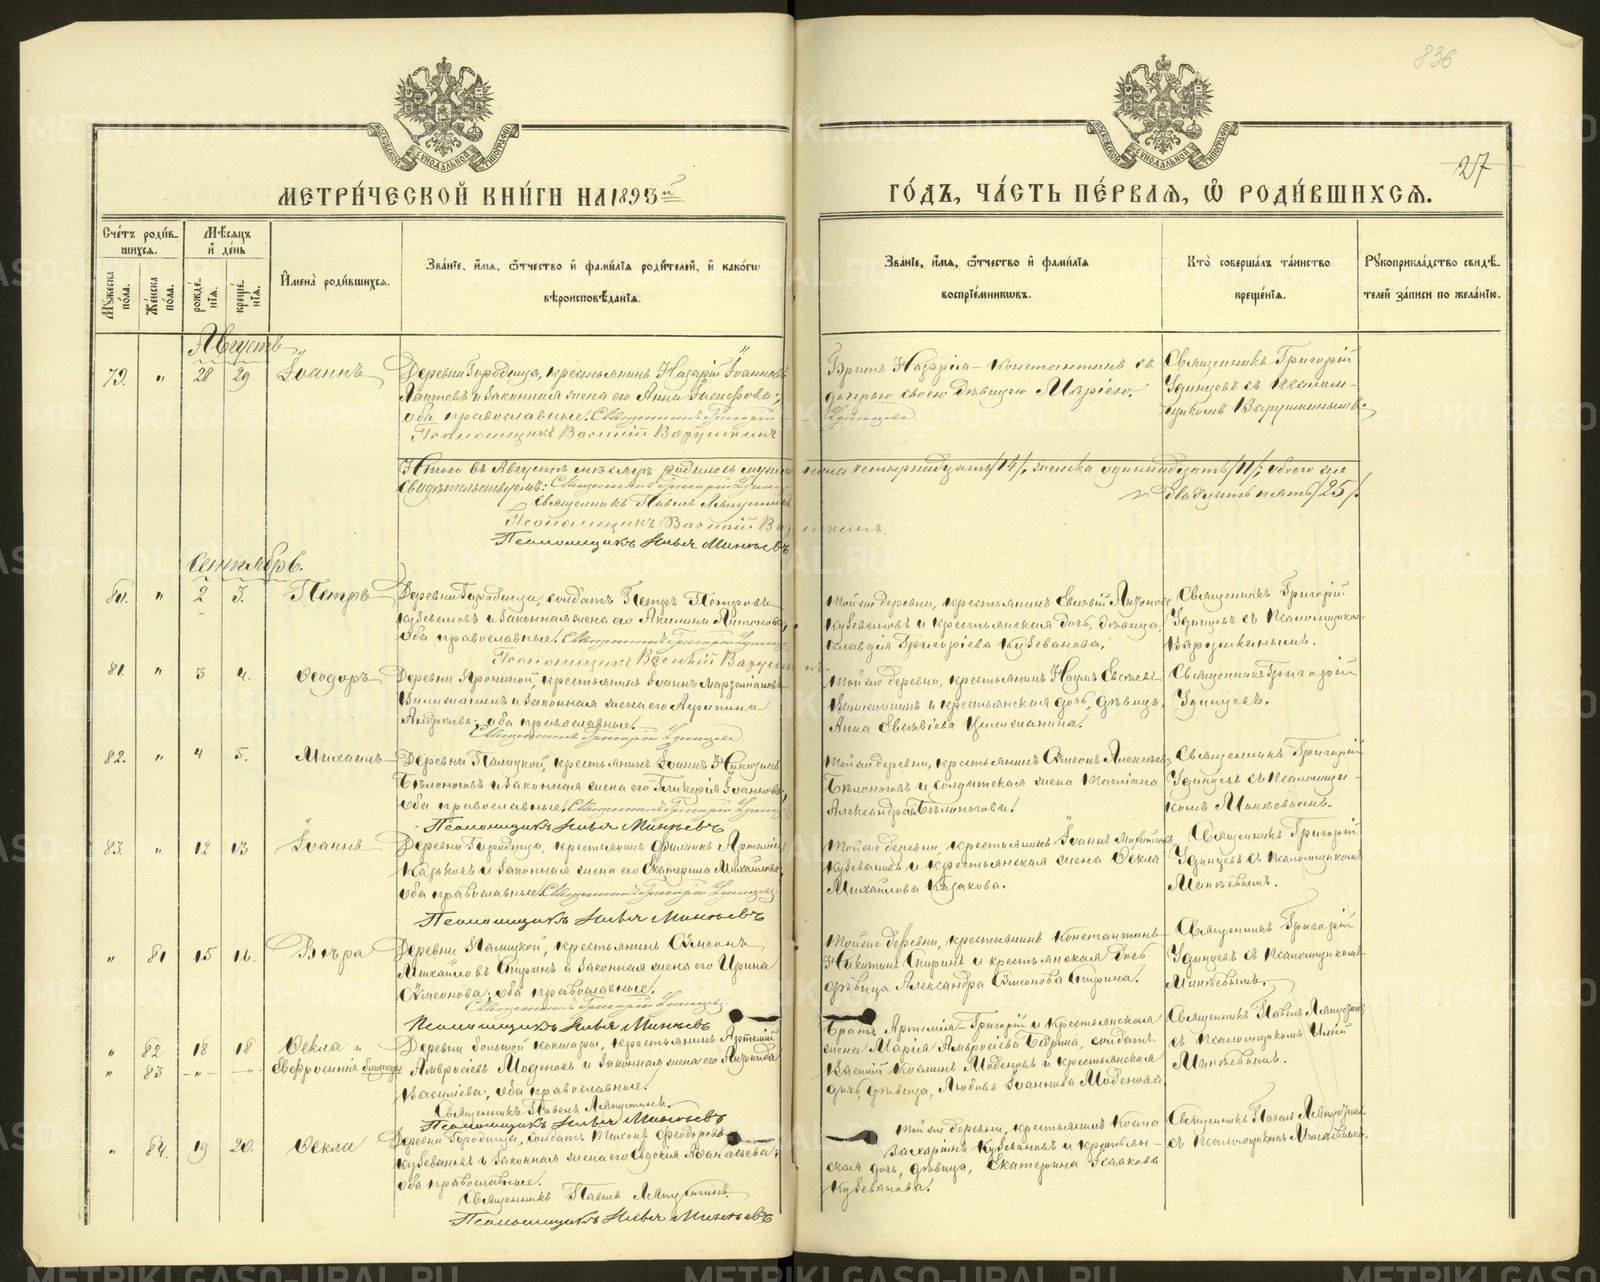 836
27
МЕТРИ́ЧЕСКОЙ КНИ́ГИ НА 1893й
ГО́ДЪ, ЧА́СТЬ ПЕ́РВАЯ, Ѡ РОДИ́ВШИХСЯ.
МОСКОВСКОЙ СѴНОДАЛЬНОЙ ТИПОГРАФІИ
МОСКОВСКОЙ СѴНОДАЛЬНОЙ ТИПОГРАФІИ
Сче́тъ роди́в-
шихся.
Му́жеска по́ла.
Же́нска по́ла.
Мѣ́сяцъ
и де́нь
рожде́нїя.
креще́нїя.
Имена̀ роди́вшихся.
Зва́нїе, и́мя, ѻ́тчество и фами́лїя роди́телей, и како́гѡ
вѣроисповѣ́данїя.
Зва́нїе, и́мя, ѻ́тчество и фами́лїя
воспрїе́мникѡвъ.
Кто̀ соверша́лъ та́инство
креще́нїя.
Рꙋкоприкла́дство свидѣ́-
телей за́писи по жела́нїю.
Августъ
79. " 28 29 Іоаннъ
Деревни Городища, крестьянинъ Назарій Іоанновъ
Лаптевъ и законная жена его Анна
оба православные. Священникъ Григорій
Удинцевъ.
Псаломщикъ Василій Варушкинъ
Братъ Назарія – Константинъ съ
дочерью своею дѣвицею Маріею.
Священникъ Григорій
Удинцевъ съ Псалом-
щикомъ Варушкинымъ.
Итого въ Августѣ мѣсяцѣ родилось мужеска пола четырнадцать /14/, женска одиннадцать /11/, обоего же
двадцать пять /25/.
Свидѣтельствуемъ: Священникъ Григорій Удинцевъ
Священникъ Павелъ Ляпустинъ
Псаломщикъ Василій Варушкинъ.
Псаломщикъ Илья Минѣевъ
Сентябрь.
80. " 2 3. Петръ
Деревни Городища, солдатъ Петръ Петровъ
Кузевановъ и законная жена его Акилина Антонова,
оба православные. Священникъ Григорій Удинцевъ
Псаломщикъ Василій Варушкинъ
Той же деревни, крестьянинъ Евсевій
Кузевановъ и крестьянская дочь, дѣвица,
Клавдія Григоріева Кузеванова.
Священникъ Григорій
Удинцевъ съ Псаломщикомъ
Варушкинымъ.
81. " 3 4. Ѳеодоръ
крестьянинъ Іоаннъ
и законная жена его Агрипина
Андреева, оба православные.
Священникъ Григорій Удинцевъ.
Той же деревни, крестьянинъ Наумъ Евсеевъ
и крестьянская дочь, дѣвица,
Анна Евсевіева
Священникъ Григорій
Удинцевъ.
82. " 4 5. Михаилъ
Деревни Паницкой, крестьянинъ Іоаннъ
Бѣлоноговъ и законная жена его Гликерія Іоаннова,
оба православные. Священникъ Григорій Удинцевъ
Псаломщикъ Илья Минѣевъ
Той же деревни, крестьянинъ Сѵмеонъ Алексѣевъ
Бѣлоноговъ и солдатская жена Татіана
Александрова Бѣлоногова.
Священникъ Григорій
Удинцевъ съ Псаломщи-
комъ Минѣевымъ.
83. " 12 13 Іоаннъ
Деревни Городища, крестьянинъ Филиппъ
Казаковъ и законная жена его Екатерина Михайлова,
оба православные. Священникъ Григорій Удинцевъ
Псаломщикъ Илья Минѣевъ
Той же деревни, крестьянинъ Іоаннъ
Кузевановъ и крестьянская жена Ѳекла
Михайлова Казакова.
Священникъ Григорій
Удинцевъ съ Псаломщикомъ
Минѣевымъ.
" 81 15 16. Вѣра
Деревни Паницкой, крестьянинъ Сѵмеонъ
Михайловъ Спиринъ и законная жена его Ирина
Сѵмеонова, оба православные.
Священникъ Григорій Удинцевъ
Псаломщикъ Илья Минѣевъ
Той же деревни, крестьянинъ Константинъ
Никитинъ Спиринъ и крестьянская дочь
дѣвица Александра Сѵмеонова Спирина.
Священникъ Григорій
Удинцевъ съ Псаломщикомъ
Минѣевымъ.
" 82 18 18 Ѳекла и
" 83 – " – – " – Евфросинія близнецы
Деревни Большой крестьянинъ Артемій
Амвросіевъ Моденовъ и законная жена его Антонида
Васильева, оба православные.
Священникъ Павелъ Ляпустинъ.
Псаломщикъ Илья Минѣевъ
Братъ Артемія – Григорій и крестьянская
жена Марія Амвросіева солдатъ
Василій Козминъ Моденовъ и крестьянская
дочь, дѣвица, Любовь Іоаннова Моденова
Священникъ Павелъ Ляпустинъ
съ Псаломщикомъ Ильей
Минѣевымъ.
" 84. 19 20. Ѳекла
Деревни Городища, солдатъ Тихонъ Ѳеодоровъ
Кузевановъ и законная жена его Евдокія Аѳанасьева,
оба православные.
Священникъ Павелъ Ляпустинъ.
Псаломщикъ Илья Минѣевъ
Той же деревни, крестьянинъ Косма
Захаринъ Кузевановъ и крестьян-
ская дочь, дѣвица, Екатерина Исаакова
Кузеванова.
Священникъ Павелъ Ляпустинъ
съ Псаломщикомъ Минѣевымъ.
METRIKI.GASO-URAL.RU